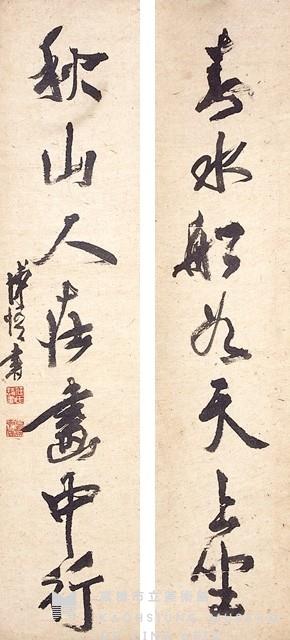 春水船如天上坐
秋山人在畫中行
高雄市立美術館
KAOHSIUNG MUSEUM